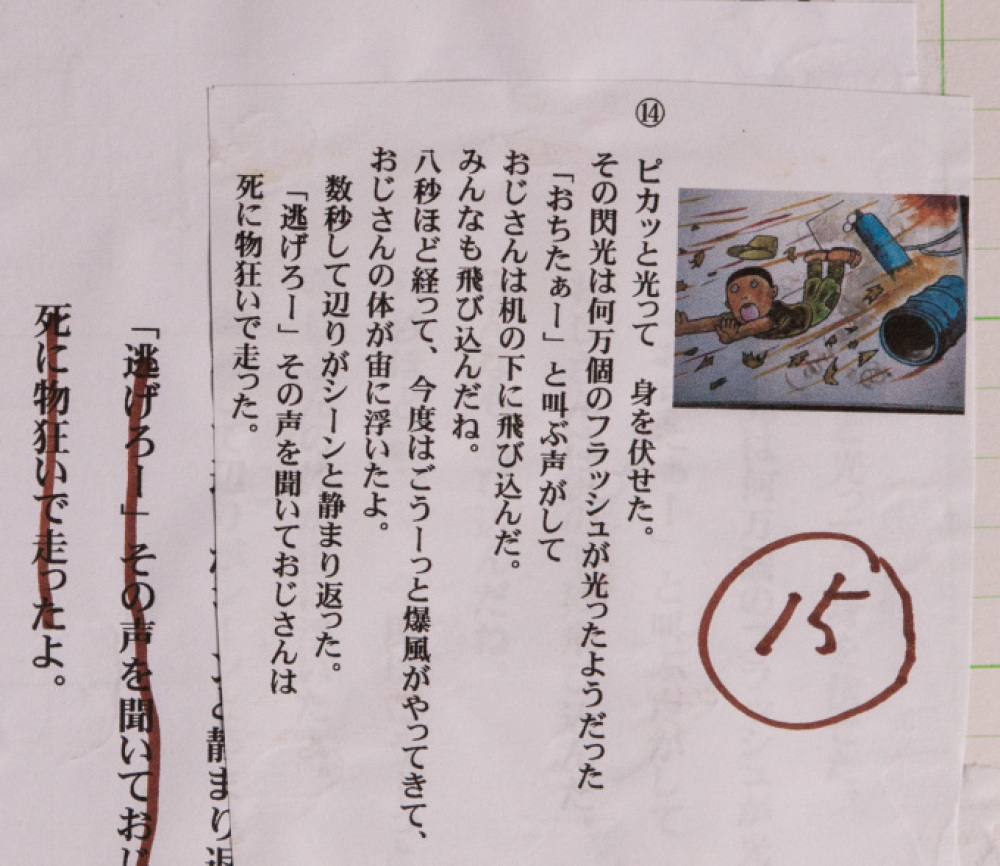 ⑭
ピカッと光って　身を伏せた。
その閃光は何万個のフラッシュが光ったようだった
「おちたぁー」と叫ぶ声がして
おじさんは机の下に飛び込んだ。
みんなも飛び込んだね。
八秒ほど経って、今度はごうーっと爆風がやってきて、
おじさんの体が宙に浮いたよ。
数秒して辺りがシーンと静まり返った。
「逃げろー」その声を聞いておじさんは
死に物狂いで走った。
15
と静まり返
「逃げろー」その声を聞いておじ
死に物狂いで走ったよ。